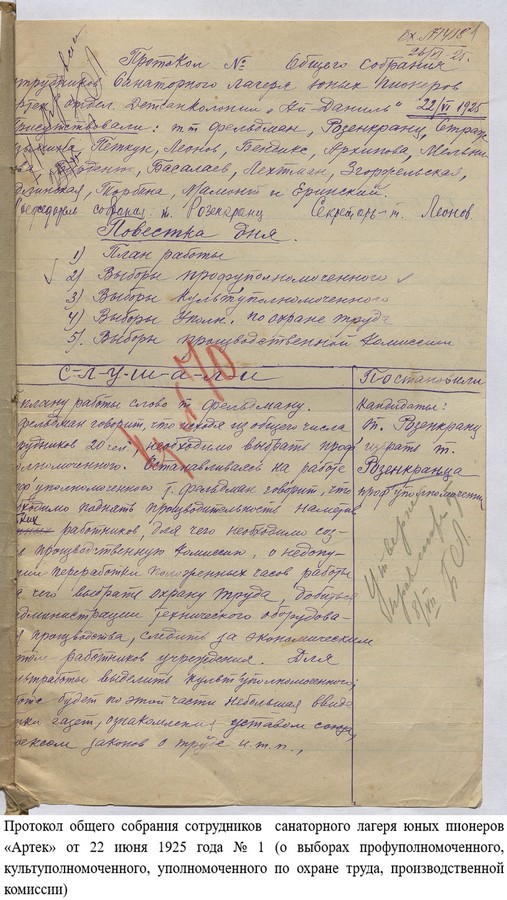 Вх. №1418
26/VI 25.
Протокол № Общего собрания
трудников Санаторного лагеря юных пионеров
Артек отдел. Детсанколонии „Ай-Даниль" 22/VI 1925
Присутствовали: т.т. Фельдман, Розенкранц, Страж
Петкун, Леонов, Бендикс, Архипова, Мельни
Басалаев, Лехтман, Згоржельская,
Мамонт и Еринский.
Председат. собрания т. Розенкранц Секретарь-т. Леонов
Повестка дня.
1) План работы
2) Выборы профуполномоченного
3) Выборы Культуполномоченного
4) Выборы Уполн. по охране труда
5). Выборы производственной Комиссии
С-л-у-ш-а-л-и
Постановили
плану работы слово т. Фельдману.
Фельдман говорит, что исходя из общего числа
трудников 20 чел., необходимо выбрать проф
полномоченного. Останавливаясь на работе
проф'уполномоченного т. Фельдман говорит, что
ходимо поднять производительность
работников, для чего необходимо соз-
производственную комиссию, о недопу-
переработки положенных часов работы
чего выбрать охрану труда, добиться
администрации технического оборудова-
производства, следить за экономическим
работников учреждения. Для
культработы выделить культ'уполномоченного,
будет по этой части небольшая ввиде
газет, ознакомления уставом союза,
кодексом законов о труде и.т.п.,
Кандидаты:
т. Розенкранц
избрать т.
Розенкранца
проф'уполномоченным
8/VII
Протокол общего собрания сотрудников санаторного лагеря юных пионеров
«Артек» от 22 июня 1925 года № 1 (о выборах профуполномоченного,
культуполномоченного, уполномоченного по охране труда, производственной
комиссии)